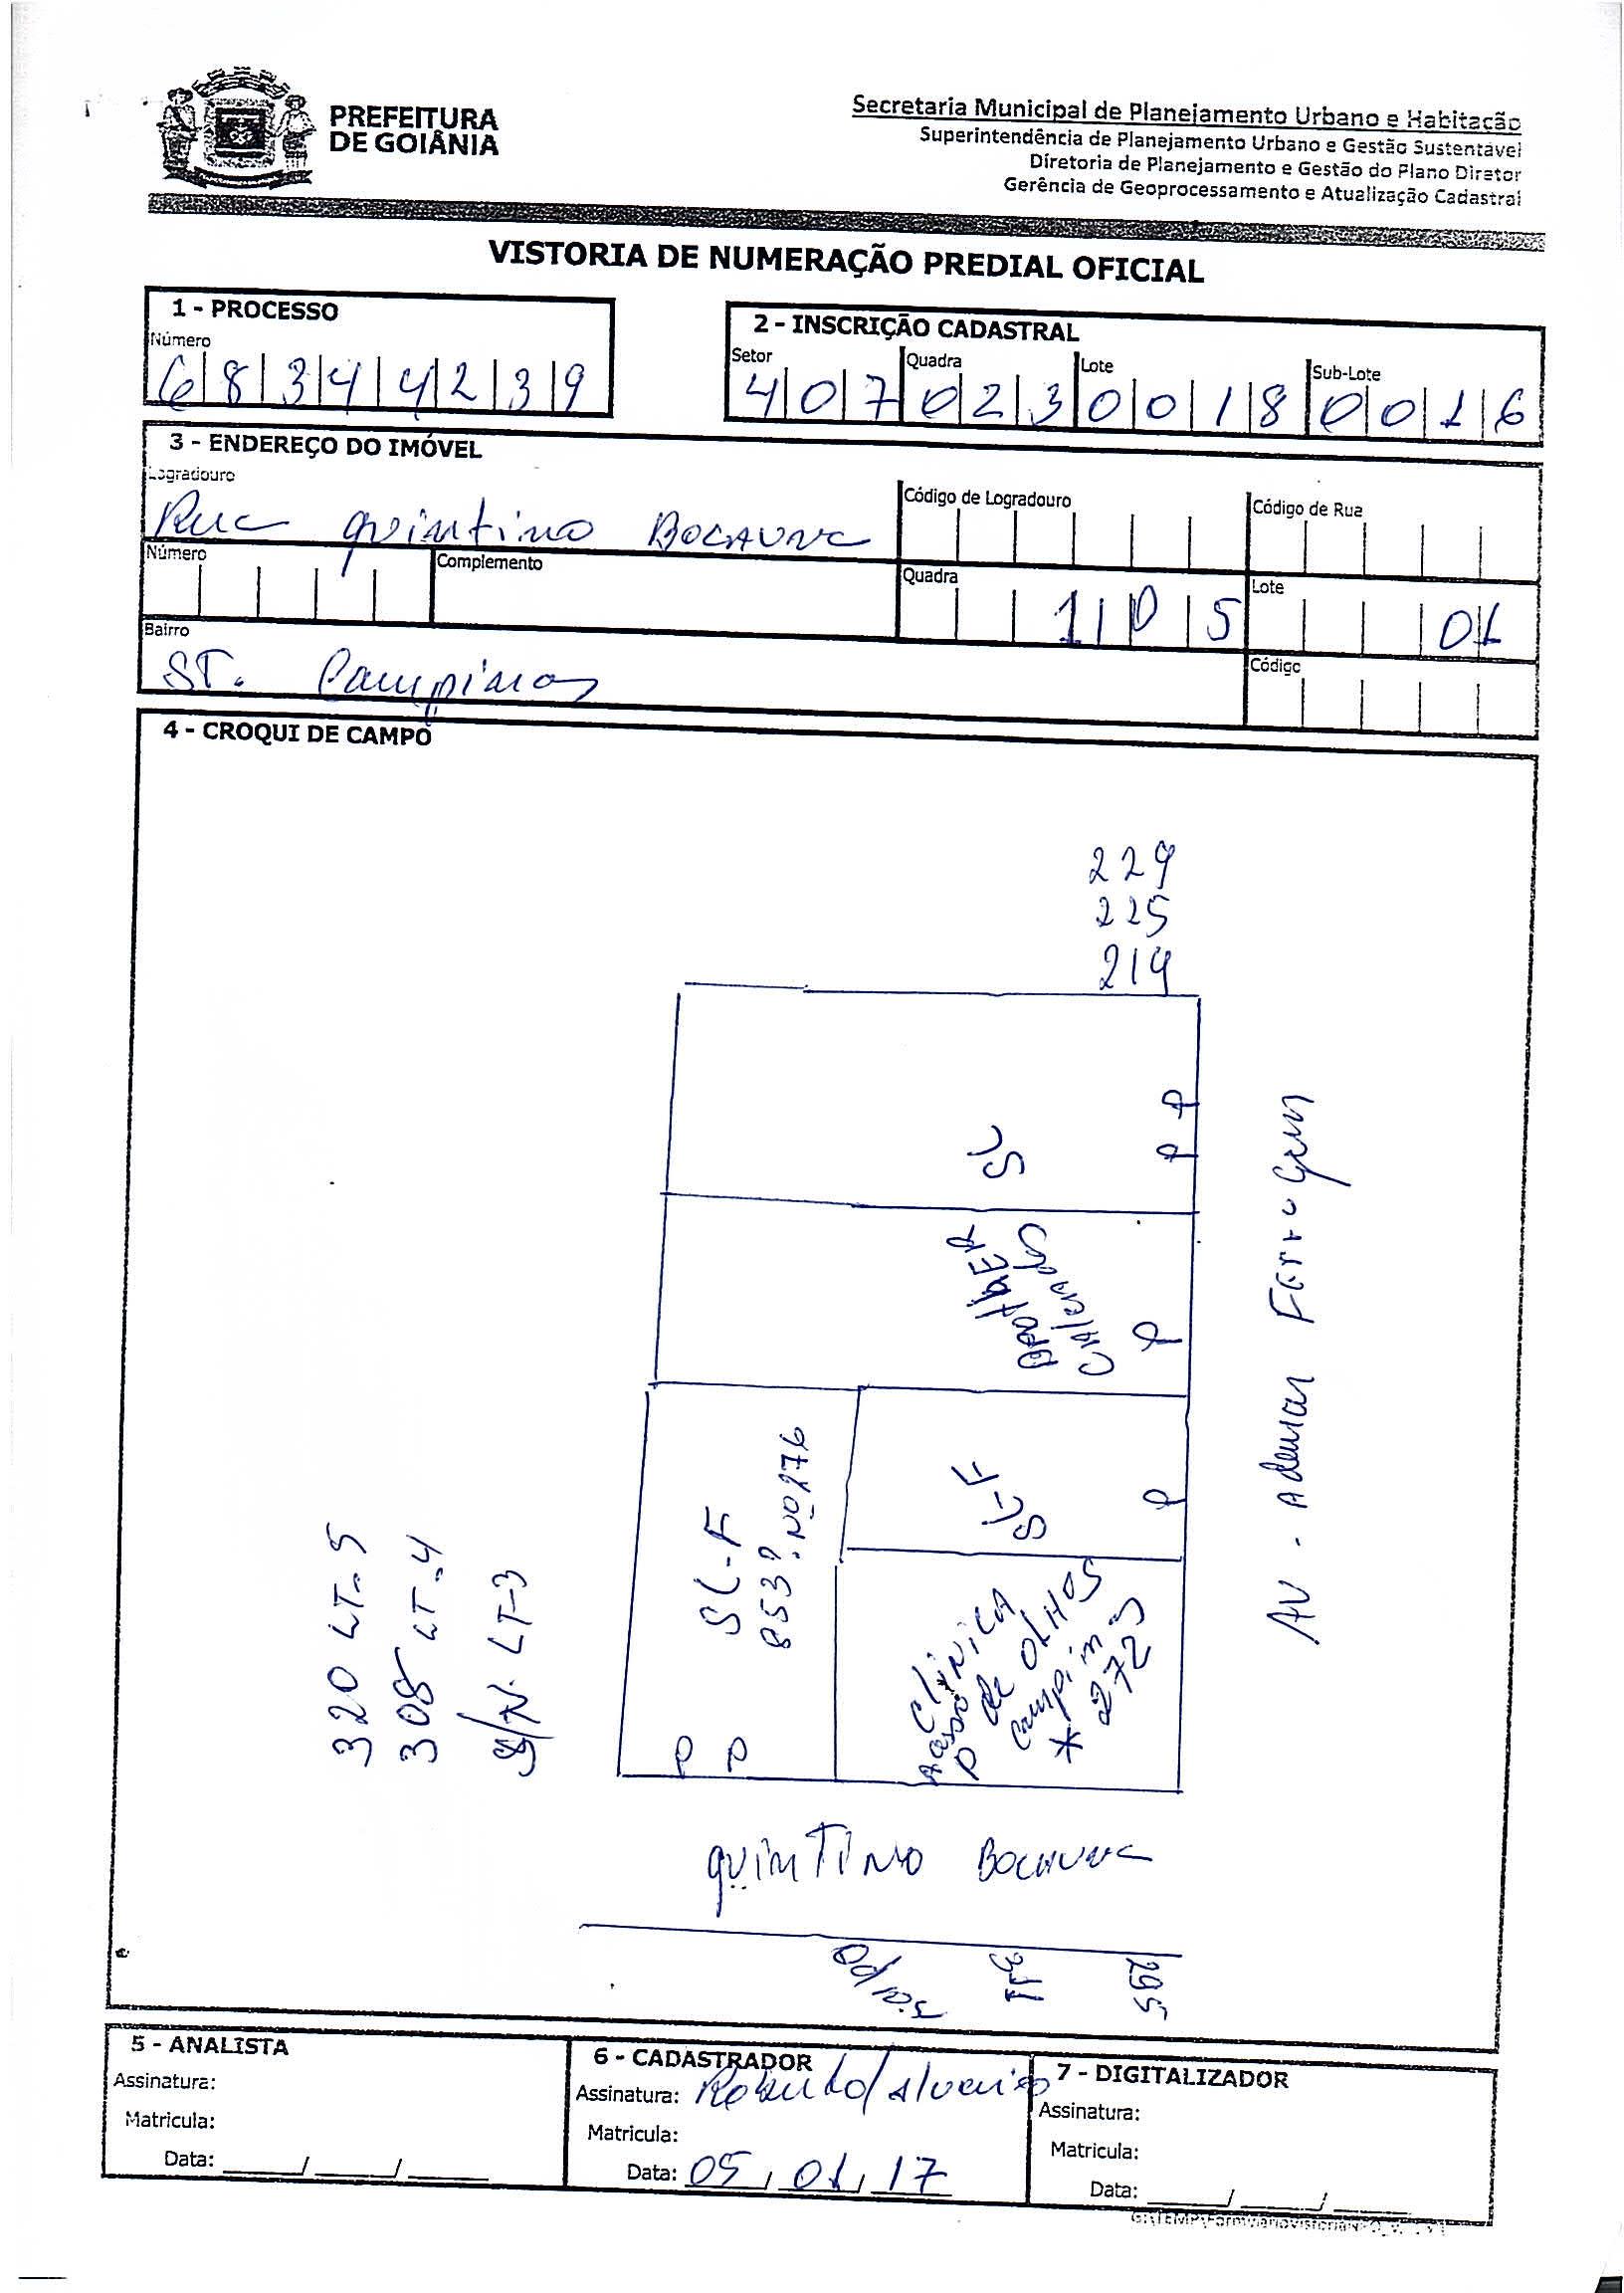 PREFEITURA
DE GOIÂNIA
Secretaria Municipal de Planejamento Urbano e Habitação
Superintendência de Planejamento Urbano e Gestão Sustentável
Diretoria de Planejamento e Gestão do Plano Diretor
Gerência de Geoprocessamento e Atualização Cadastral
VISTORIA DE NUMERAÇÃO PREDIAL OFICIAL
1 - PROCESSO
Número
68344239
2 - INSCRIÇÃO CADASTRAL
Setor Quadra Lote Sub-Lote
407 023 0018 0016
3 - ENDEREÇO DO IMÓVEL
Logradouro Código de Logradouro Código de Rua
Rua quintino Bocaiuva
Número Complemento Quadra Lote
105 01
Bairro Código
ST. Campinas
4 - CROQUI DE CAMPO
229
225
219
SL
P P
Cralerados
P
SL-F
P
SL-F
853? Nº 276
P P
Clinica
de OLHOS
Campinas
P
* 272
AV. Ademar Ferrugem
320 LT-5
308 LT-4
S/N LT-3
quintino Bocaiuva
311
295
5 - ANALISTA
Assinatura:
Matricula:
Data: ____/____/____
6 - CADASTRADOR
Assinatura:
Matricula:
Data: 05/01/17
7 - DIGITALIZADOR
Assinatura:
Matricula:
Data: ____/____/____